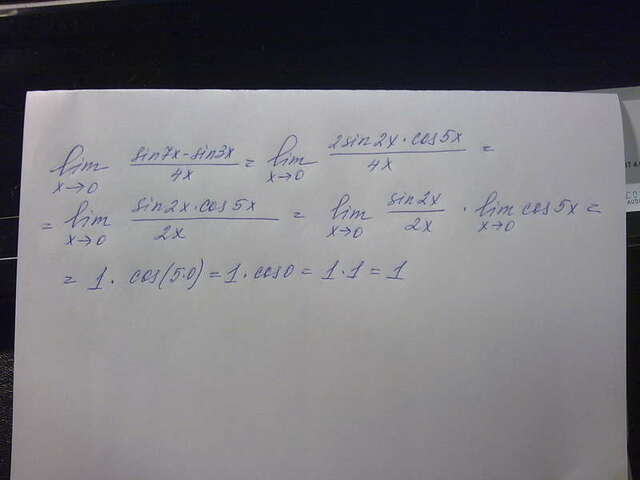 lim x→0 (sin7x-sin3x)/4x = lim x→0 (2sin2x·cos5x)/4x =
= lim x→0 (sin2x·cos5x)/2x = lim x→0 sin2x/2x · lim x→0 cos5x =
= 1· cos(5·0) = 1· cos0 = 1·1 = 1